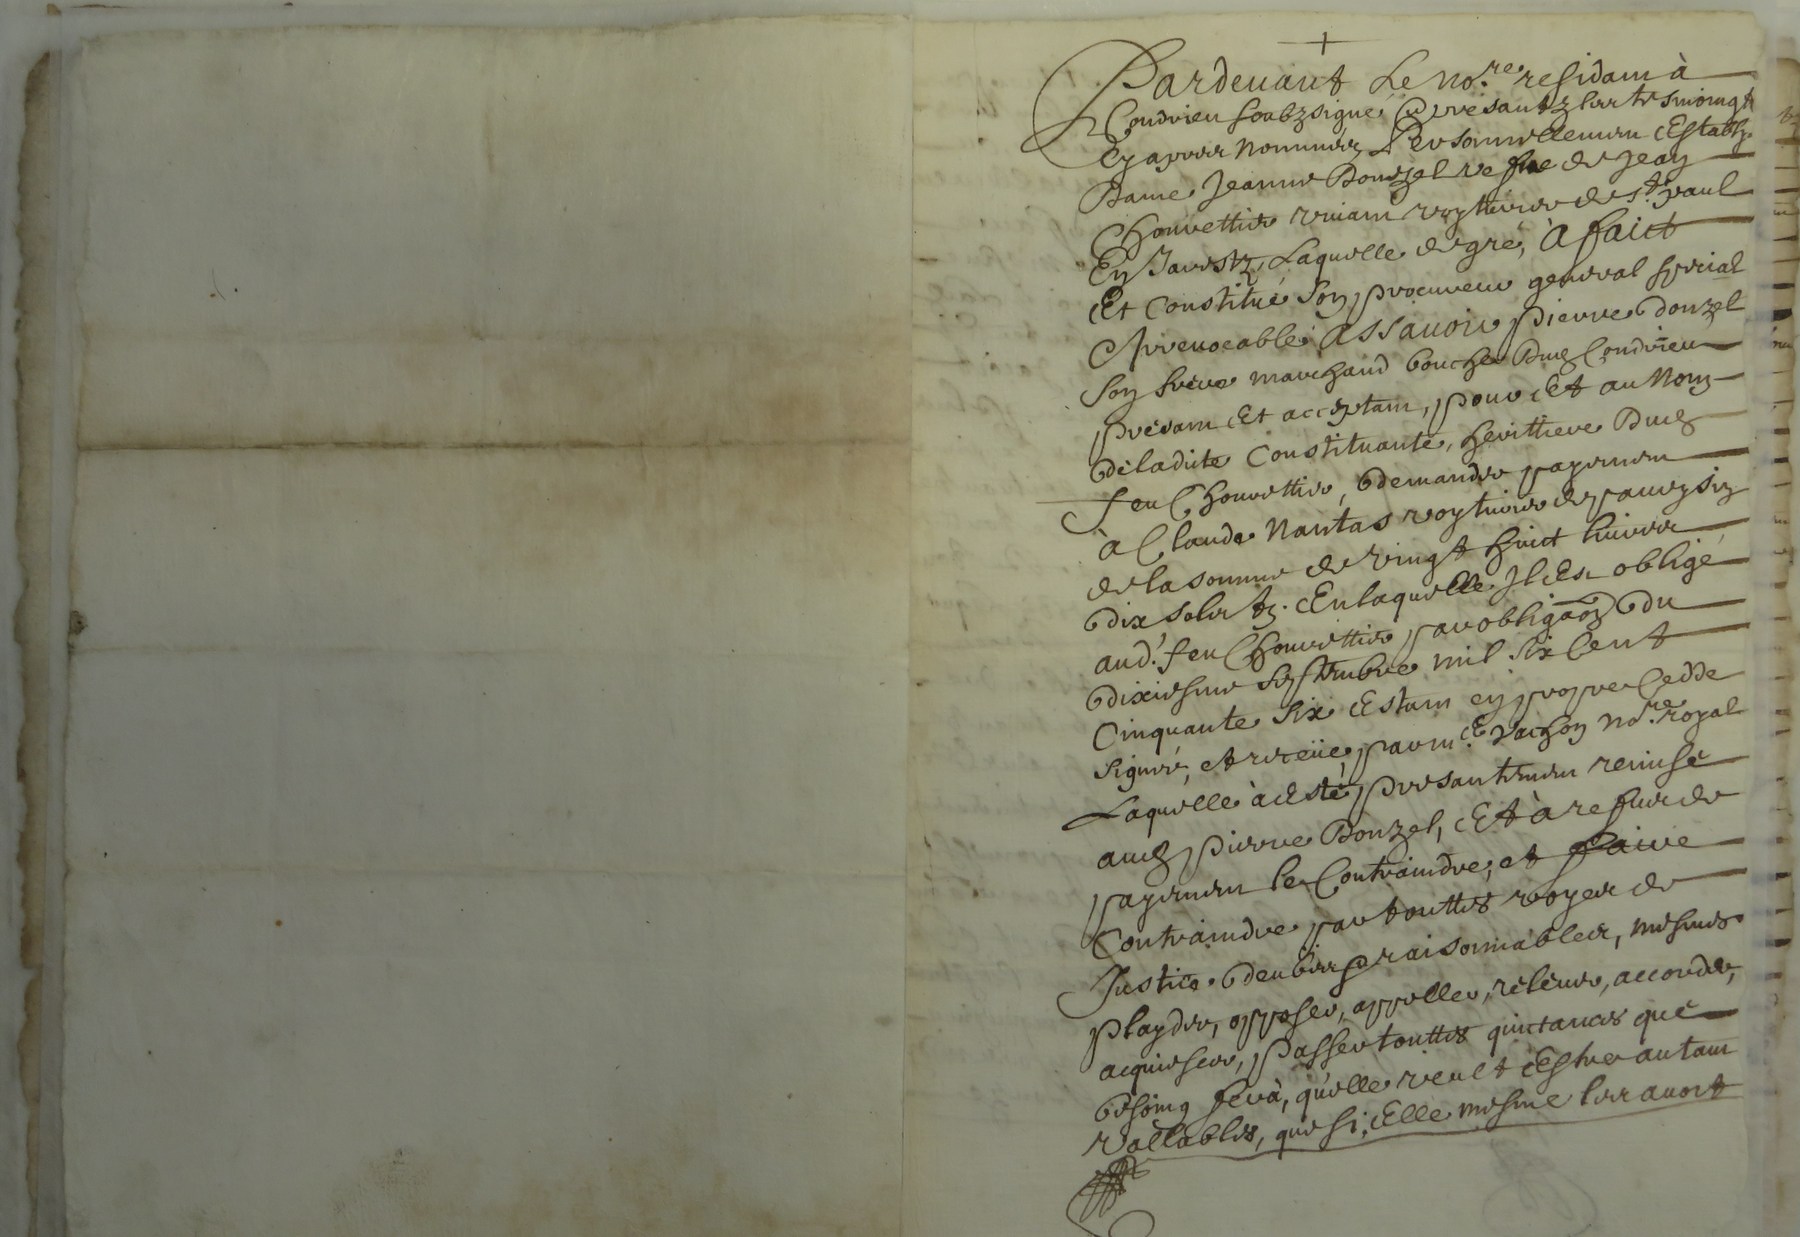 +
Pardeuant Le No.re residant à
Condrieu soubzsigné, presantz les tesmoingt
Cy apres nommez Personnellement Establye
Dame Jeanne Donzel vefue de Jean
Chouvettier viuant voyturier de st. paul
En Jarestz, Laquelle de gré, à faict
Et constitué son procureur general special
Irreuocable, Assauoir, pierre donzel
son frere marchand boucher dud Condrieu
présant Et acceptant, pour Et au Nom
dèladite Constituante, herittiere dud
feu Chouvettier, demander payement
à Claude Nantas voyturier de
de la somme de vingt huict liures
dix solz tz. En laquelle Il Est obligé
aud.' feu Chouvettier par obligaon du
dixiesme septembre mil six Cent
Cinquante six Estant en propre Cedde
signée, et receüe, par me Vachon no.re royal
Laquelle à Esté, presantement remise
aud pierre Donzel, Et à refus de
payement le Contraindre, et faire
Contraindre par touttes voyes de
Justice deubes raisonnables, mesmes
playder, opposer, appeller, rèleuer, accorder,
acquiescer, passer touttes quictances què
bésoing sera, qu'elle veult Estre autant
vallables, que si, Elle mesme les auoit